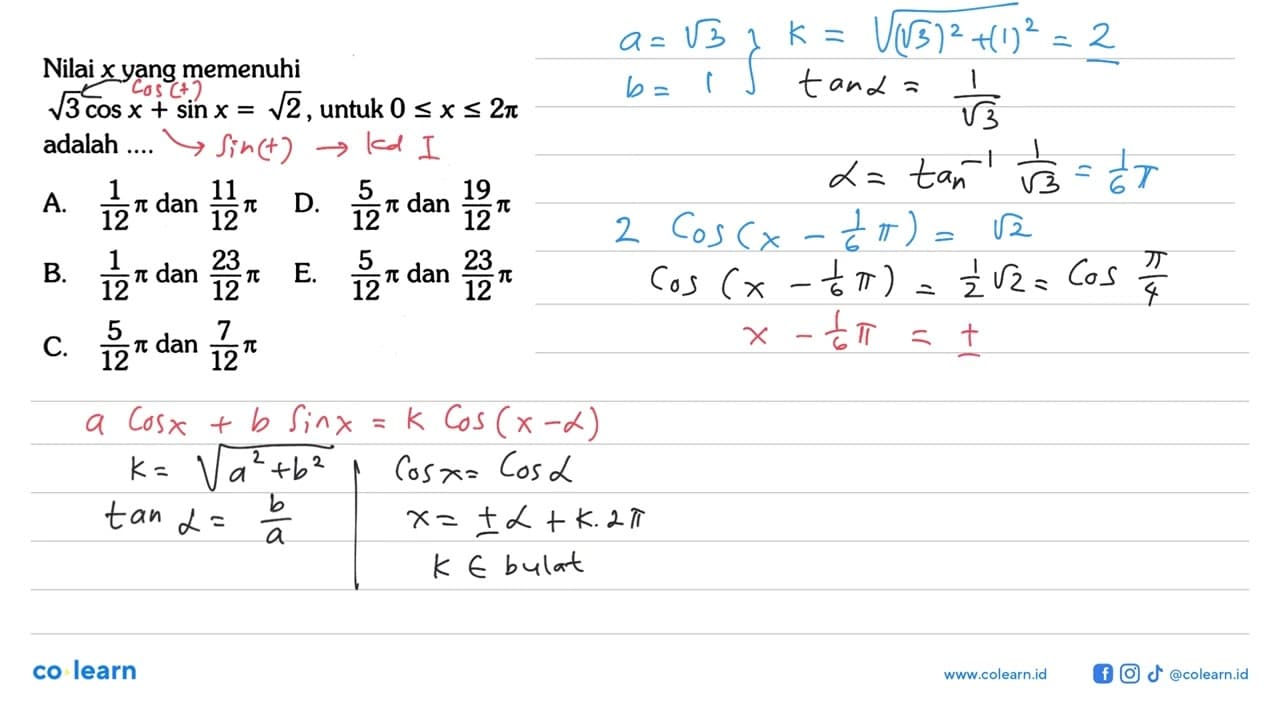 Nilai x yang memenuhi
cos (+)
√3 cos x + sin x = √2, untuk 0 ≤ x ≤ 2π
adalah .... → Sin(+) → kd I
A. 1/12 π dan 11/12 π D. 5/12 π dan 19/12 π
B. 1/12 π dan 23/12 π E. 5/12 π dan 23/12 π
C. 5/12 π dan 7/12 π
a = √3 } k = √((√3)² + (1)²) = 2
b = 1 tan α = 1/√3
α = tan⁻¹ 1/√3 = 1/6 π
2 Cos (x - 1/6 π) = √2
Cos (x - 1/6 π) = 1/2 √2 = Cos π/4
x - 1/6 π = ±
a Cos x + b Sin x = k Cos (x - α)
k = √(a² + b²)
tan α = b/a
Cos x = Cos α
x = ± α + k. 2π
k ∈ bulat
co learn
www.colearn.id
@colearn.id